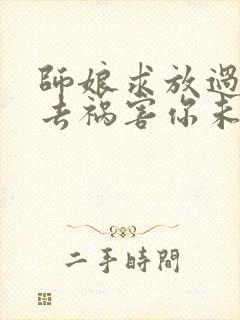 師娘求放過
去禍害你未
二手時間